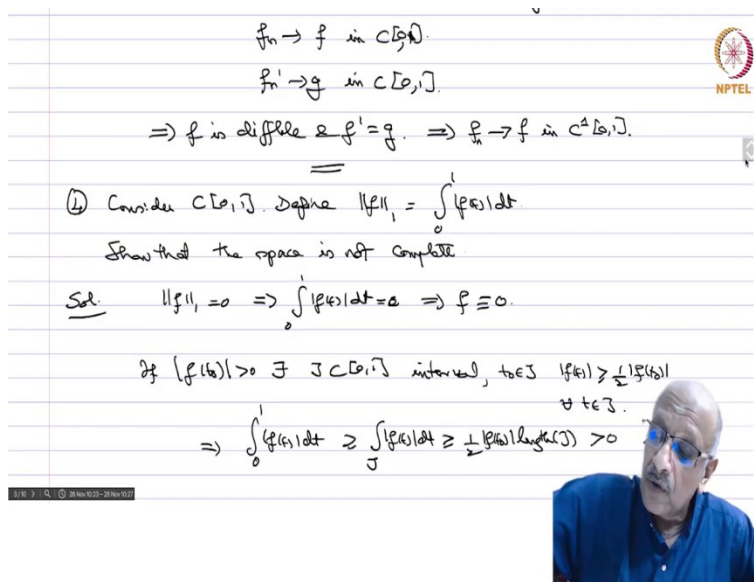 fₙ → f in C[0,1].
NPTEL
fₙ' → g in C[0,1].
⇒ f is diffble & f' = g. ⇒ fₙ → f in C¹[0,1].
④ Consider C[0,1]. Define ‖f‖₁ = ∫₀¹ |f(t)| dt
Show that the space is not complete
Sol. ‖f‖₁ = 0 ⇒ ∫₀¹ |f(t)| dt = 0 ⇒ f ≡ 0.
If |f(t₀)| > 0 ∃ J ⊂ [0,1] interval, t₀ ∈ J |f(t)| ≥ ½|f(t₀)|
∀ t ∈ J.
⇒ ∫₀¹ |f(t)| dt ≥ ∫_J |f(t)| dt ≥ ½|f(t₀)| length(J) > 0
3/10 28 Nov 10:23 - 28 Nov 10:27